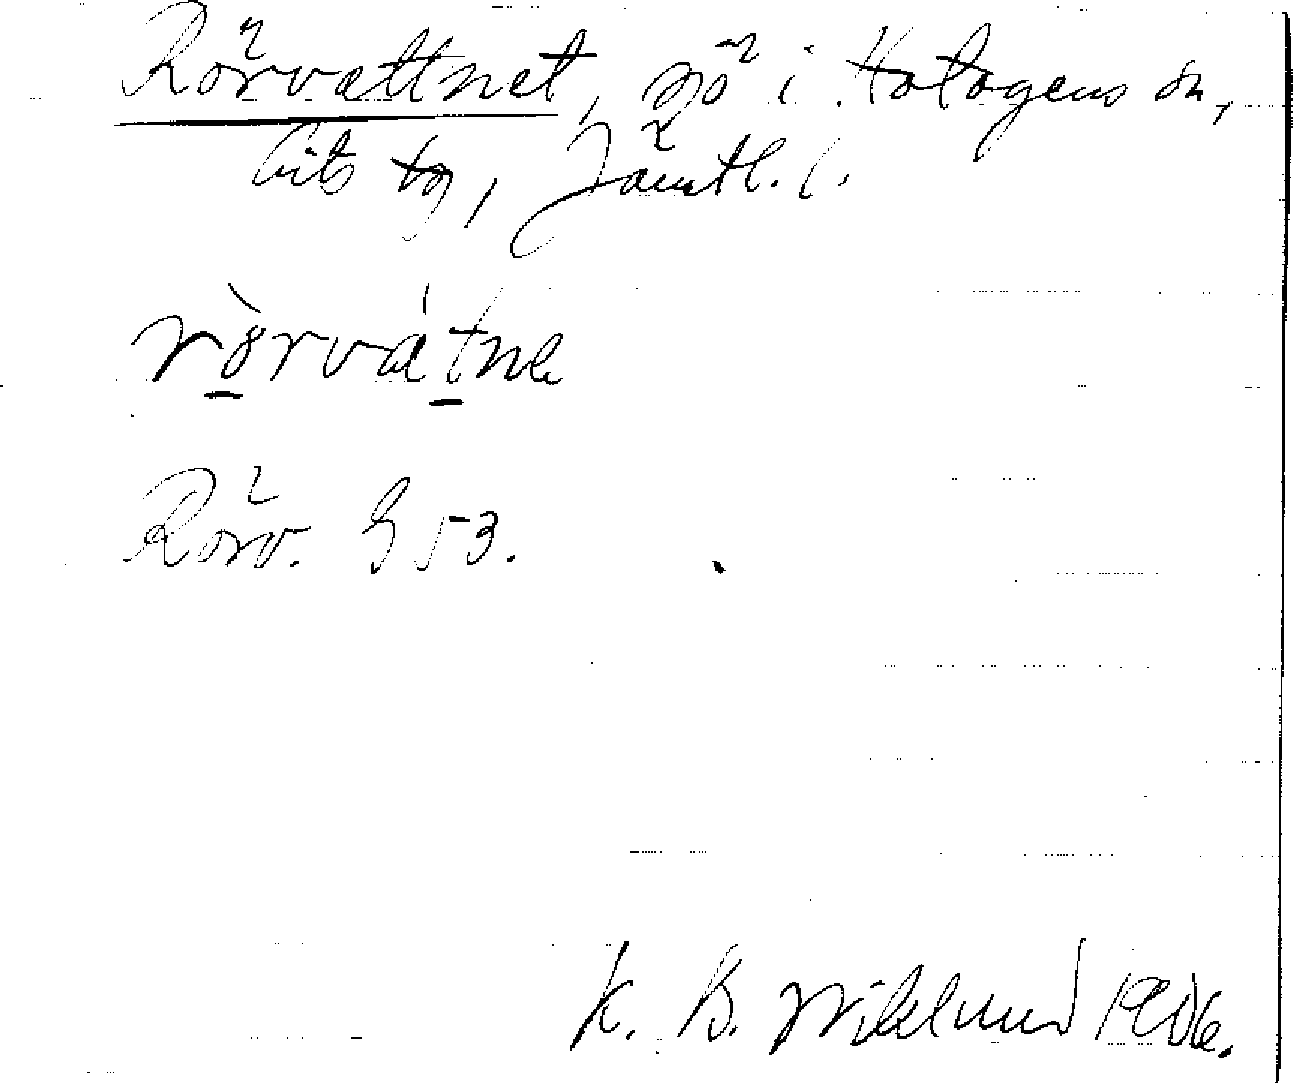 Rörvattnet, sjö i Hotagens sn,
Lits tg, Jämtl. l.
ròrvátne
Rörv. § 53.
K. B. Wiklund 1906.